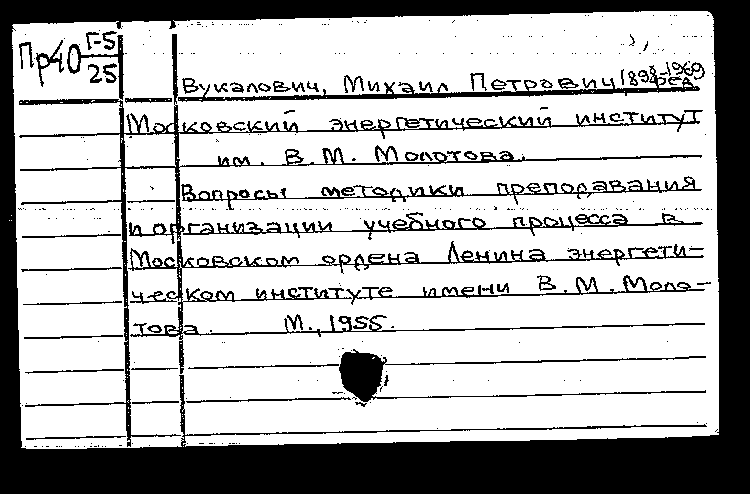 Пр40 Г-5
25
Вукалович, Михаил Петрович, 1898-1969
ред.
Московский энергетический институт
им. В.М. Молотова.
Вопросы методики преподавания
и организации учебного процесса в
Московском ордена Ленина энергети-
ческом институте имени В.М. Моло-
това. М., 1955.